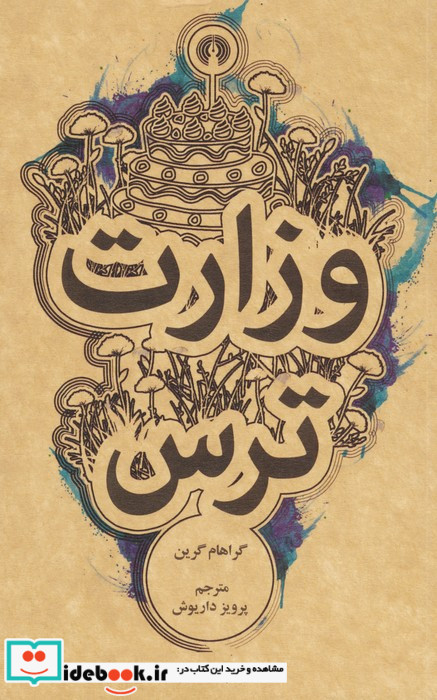 وزارت
ترس
گراهام گرین
مترجم
پرویز داریوش
مشاهده و خرید این کتاب در:
idebook.ir